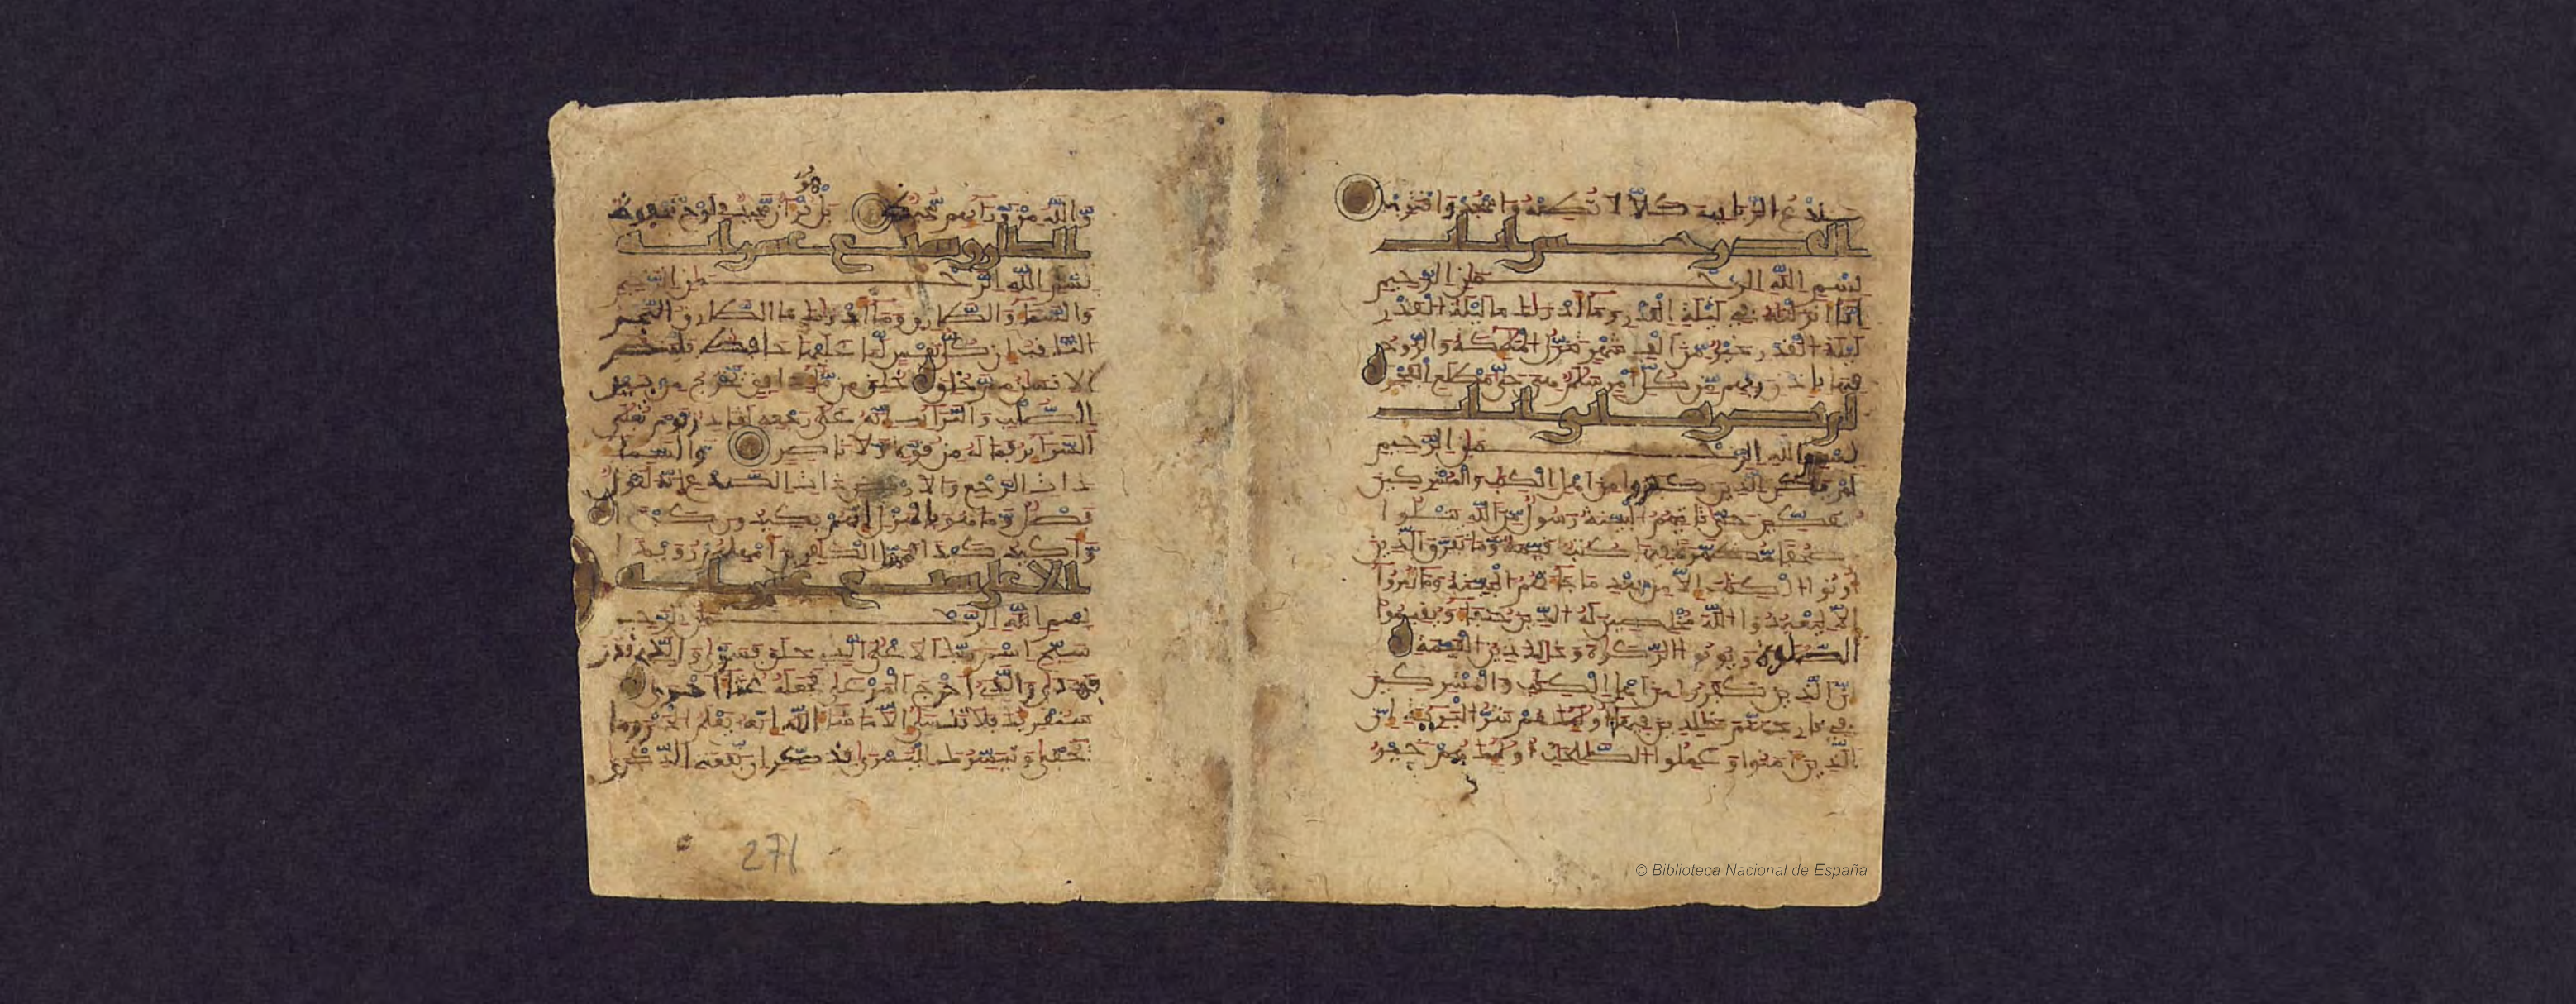 سندع الزبانية كلا لا تطعه واسجد واقترب
القدر خمس ايات
بسم الله الرحمن الرحيم
انا انزلنه في ليلة القدر وما ادريك ما ليلة القدر
ليلة القدر خير من الف شهر تنزل الملئكة والروح
فيها باذن ربهم من كل امر سلم هي حتى مطلع الفجر
ايات
بسم الله الرحمن الرحيم
لم يكن الذين كفروا من اهل الكتب والمشركين
منفكين حتى تاتيهم البينة رسول من الله يتلوا
صحفا مطهرة فيها كتب قيمة وما تفرق الذين
اوتوا الكتب الا من بعد ما جاءتهم البينة وما امروا
الا ليعبدوا الله مخلصين له الدين حنفاء ويقيموا
الصلوة ويوتوا الزكوة وذلك دين القيمة
ان الذين كفروا من اهل الكتب والمشركين
في نار جهنم خلدين فيها اوليك هم شر البرية ان
الذين امنوا وعملوا الصلحت اوليك هم خير
والله من ورائهم محيط بل هو قران مجيد في لوح محفوظ
الطارق سبع عشرة اية
بسم الله الرحمن الرحيم
والسماء والطارق وما ادريك ما الطارق النجم
الثاقب ان كل نفس لما عليها حافظ فلينظر
الانسن مم خلق خلق من ماء دافق يخرج من بين
الصلب والترائب انه على رجعه لقادر يوم تبلى
السرائر فما له من قوة ولا ناصر والسماء
ذات الرجع والارض ذات الصدع انه لقول
فصل وما هو بالهزل انهم يكيدون كيدا
واكيد كيدا فمهل الكفرين امهلهم رويدا
الاعلى تسع عشرة اية
بسم الله الرحمن الرحيم
سبح اسم ربك الاعلى الذي خلق فسوى والذي قدر
فهدى والذي اخرج المرعى فجعله غثاء احوى
سنقريك فلا تنسى الا ما شاء الله انه يعلم الجهر وما
يخفى ونيسرك لليسرى فذكر ان نفعت الذكرى
271
© Biblioteca Nacional de España